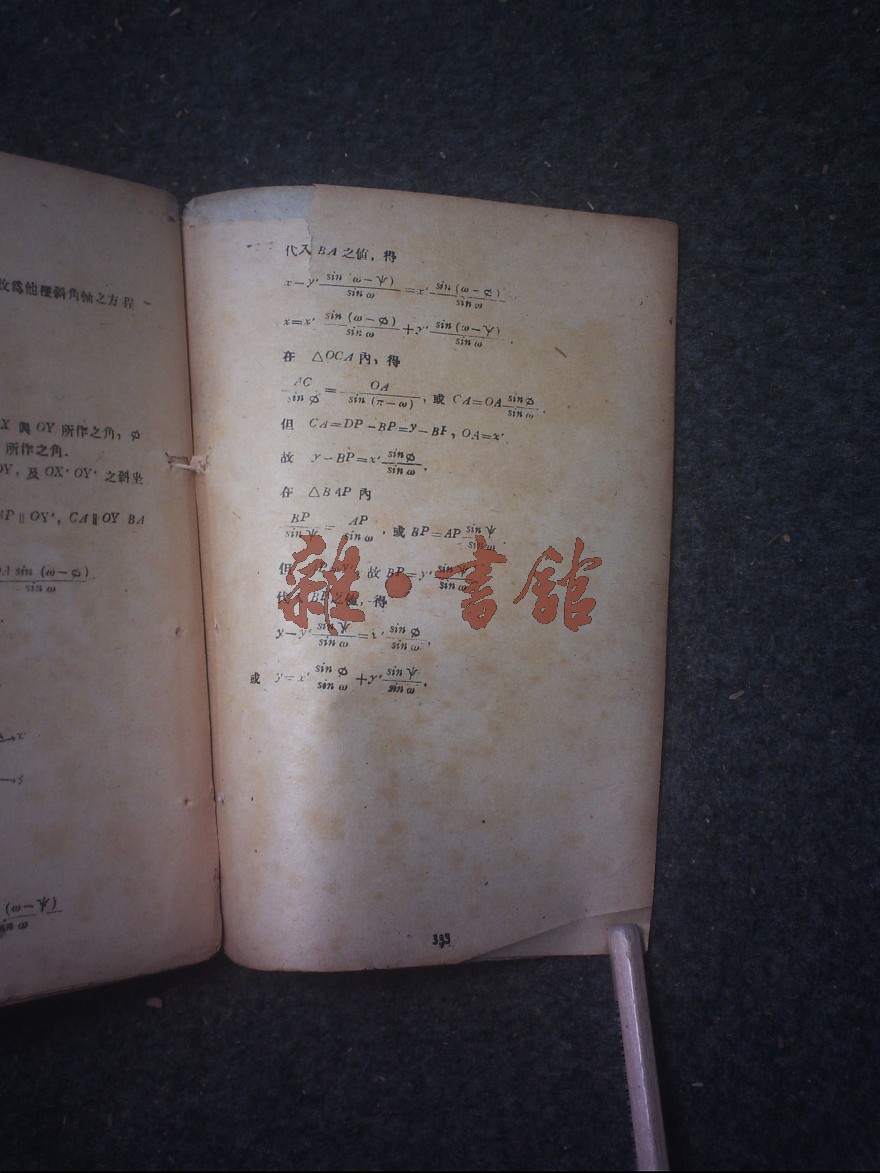 改爲他種斜角軸之方程
X 與 OY 所作之角, φ
所作之角.
OY, 及 OX′ OY′ 之斜坐
AP ∥ OY′, CA ∥ OY BA
OA sin (ω−φ) / sin ω
(ω−ψ) / sin ω
代入 BA 之值, 得
x−y′ sin (ω−ψ) / sin ω = x′ sin (ω−φ) / sin ω
x=x′ sin (ω−φ) / sin ω + y′ sin (ω−ψ) / sin ω .
在 △OCA 內, 得
AC / sin φ = OA / sin (π−ω) , 或 CA=OA sin φ / sin ω .
但 CA=DP−BP=y−BP, OA=x′
故 y−BP=x′ sin φ / sin ω .
在 △BAP 內
BP / sin ψ = AP / sin ω , 或 BP=AP sin ψ / sin ω .
但 AP=y′, 故 BP=y′ sin ψ / sin ω
代入 BP 之值, 得
y−y′ sin ψ / sin ω = x′ sin φ / sin ω ,
或 y=x′ sin φ / sin ω + y′ sin ψ / sin ω .
339
雜·書館